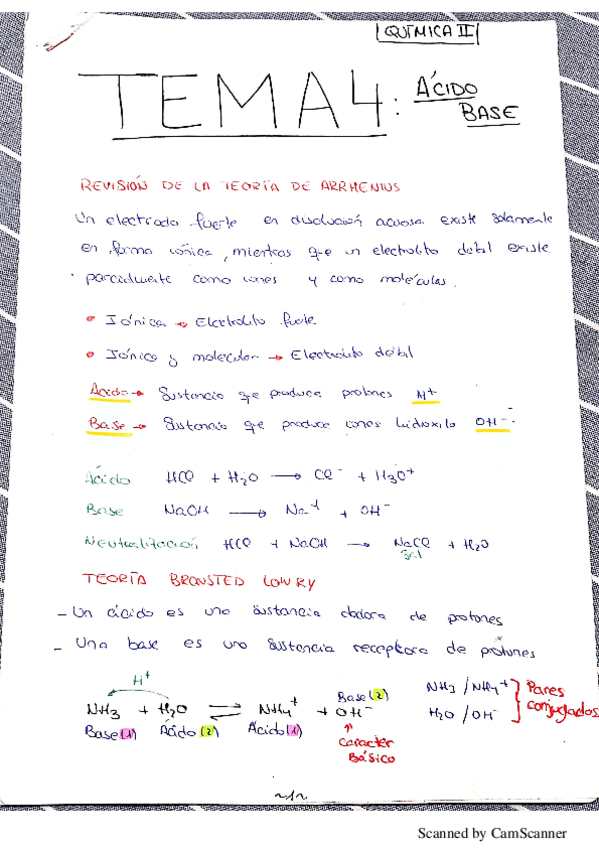 QUÍMICA II
TEMA 4: ÁCIDO
BASE
REVISIÓN DE LA TEORÍA DE ARRHENIUS
Un electrodo fuerte en disolución acuosa existe solamente
en forma iónica, mientras que un electrolito débil existe
parcialmente como iones y como moléculas.
• Iónica → Electrolito fuerte
• Iónico y molecular → Electrolito débil
Ácido → Sustancia que produce protones H⁺
Base → Sustancia que produce iones hidroxilo OH⁻.
Ácido HCl + H₂O → Cl⁻ + H₃O⁺
Base NaOH → Na⁺ + OH⁻
Neutralización HCl + NaOH → NaCl + H₂O
Sal
TEORÍA BRONSTED LOWRY
- Un ácido es una sustancia dadora de protones
- Una base es una sustancia receptora de protones
H⁺
NH₃ + H₂O ⇌ NH₄⁺ + OH⁻
Base(1) Ácido(2) Ácido(1) Base(2)
↑
Caracter
Básico
NH₃ / NH₄⁺
H₂O / OH⁻
Pares
conjugados
Scanned by CamScanner